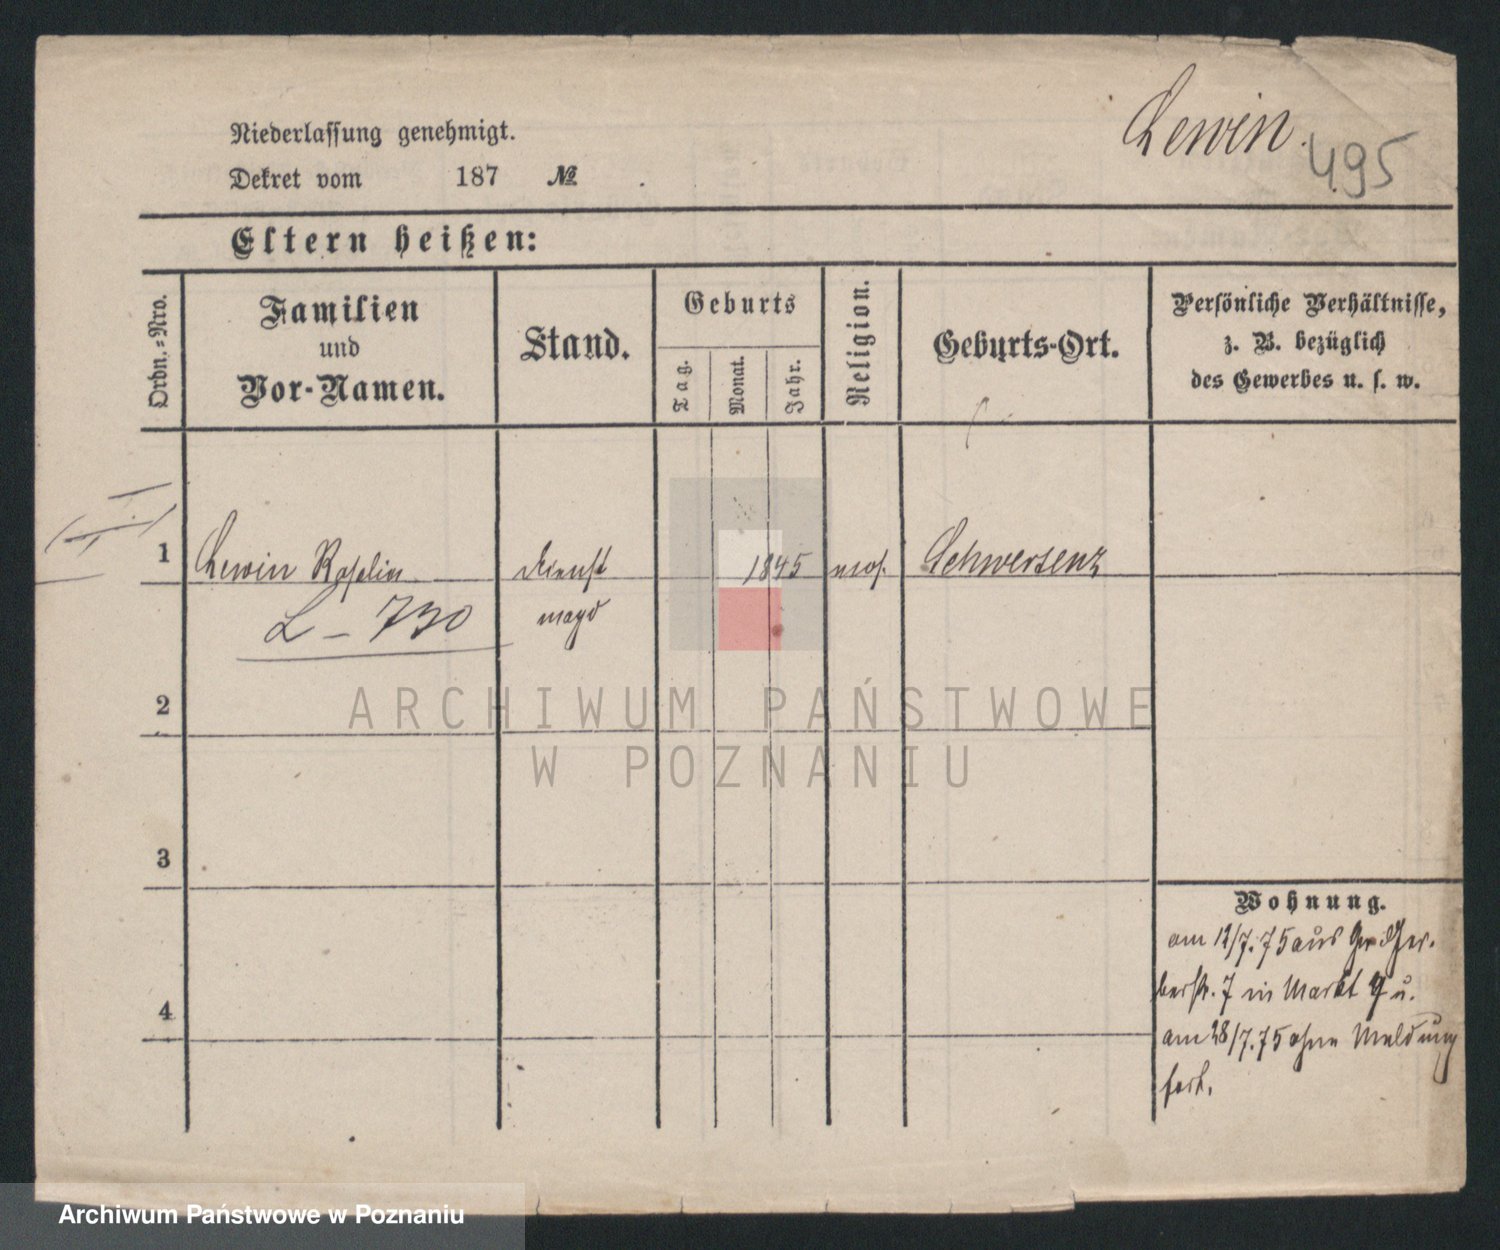 Lewin.
495
Niederlassung genehmigt.
Dekret vom 187 №
Eltern heißen:
Ordn.=Nro.
Familien
und
Vor-Namen.
Stand.
Geburts
Tag.
Monat.
Jahr.
Religion.
Geburts-Ort.
Persönliche Verhältnisse,
z. B. bezüglich
des Gewerbes u. s. w.
1 Lewin Rosalia Dienst 1845 mos. Schwersenz
L - 730 magd
2
3
4
Wohnung.
am 12/7.75 aus Ger-
berstr. 7 in Markt u.
am 28/7.75 ohne Meldung
fort.
ARCHIWUM PAŃSTWOWE
W POZNANIU
Archiwum Państwowe w Poznaniu